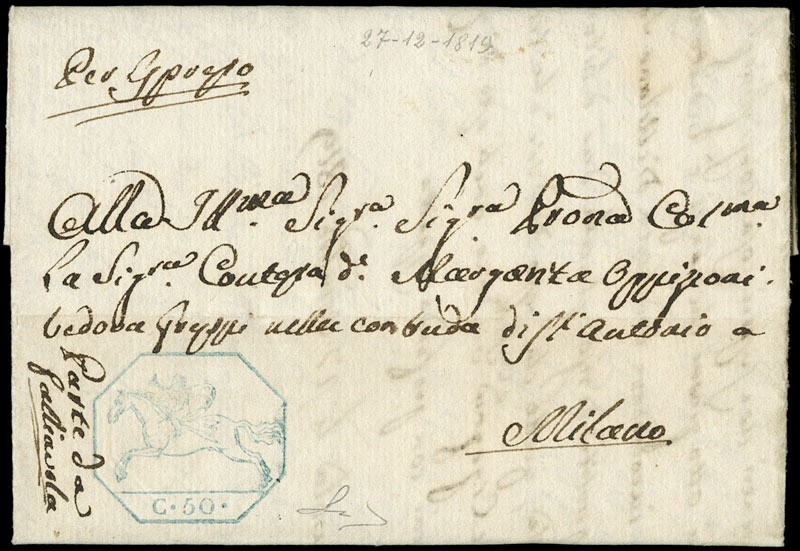 27-12-1819
Per Espresso
Alla Ill.ma Sigra. Sigra Prona Col.ma
La Sigra. Contessa Da. Margarita Oppizoni
vedova Greppi nella contrada di St. Antonio a
Milano
Parte da
Gallievola
C. 50.